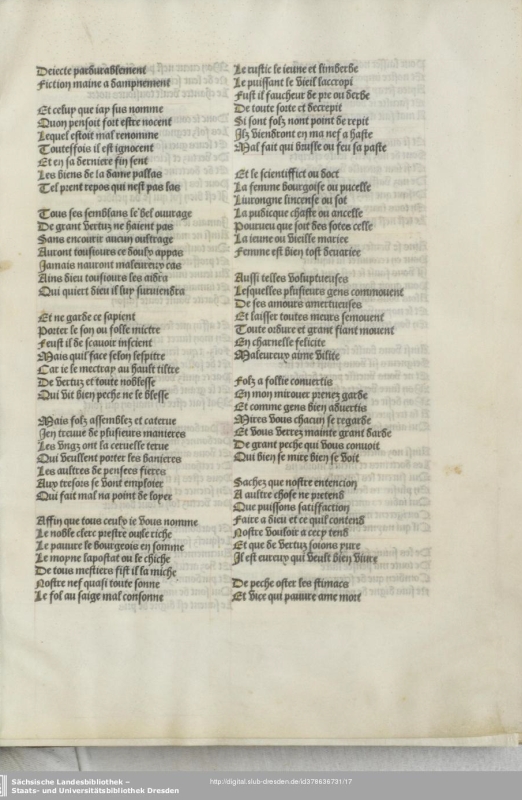 Deiecte pardurablement
Fiction maine a dampnement
Et celuy que iay sus nomme
Quon pensoit soit estre nocent
Lequel estoit mal renomme
Touteffois il est ignocent
Et en sa derniere fin sent
Les biens de la dame pallas
Tel prent repos qui nest pas las
Tous ses semblans le bel ouurage
De grant vertuz ne haient pas
Sans encourir aucun oultrage
Auront tousiours ce doulx appas
Jamais nauront maleureux cas
Ains dieu tousiours les aidra
Qui quiert dieu il luy suruiendra
Et ne garde ce sapient
Porter le son ou folle mictre
Feust il de scauoir inscient
Mais quil face selon lespitre
Car ie le mectray au hault tiltre
De vertuz et toute noblesse
Qui vit bien peche ne le blesse
Mais folz assemblez et caterue
Jen treuue de plusieurs manieres
Les vngz ont la ceruelle terue
Qui veullent porter les banieres
Les aultres de pensees fieres
Auy tresois se vont emploier
Qui fait mal na point de loyer
Affin que tous ceulx ie vous nomme
Le noble clerc prestre ou le riche
Le pauure le bourgeois en somme
Le moyne lapostat ou le chiche
De tous mestiers fist il la miche
Nostre nef quasi toute sonne
Le fol au saige mal consonne
Le rustic le ieune et limberbe
Le puissant le vieil laccropi
Fust il faucheur de pre ou herbe
De toute sorte et decrepit
Si sont folz nont point de repit
Ilz viendront en ma nef a haste
Mal fait qui brusle ou feu sa paste
Et le scientiffict ou doct
La femme bourgoise ou pucelle
Liurongne lincense ou sot
La pudicque chaste ou ancelle
Pourueu que soit des sotes celle
La ieune ou vieille mariee
Femme est bien tost desuariee
Aussi telles voluptueuses
Lesquelles plusieurs gens commouent
De ses amours amertueuses
Et laisser toutes meurs semouent
Toute ordure et grant fiant mouent
En charnelle felicite
Maleureux aime vilite
Folz a follie conuertis
En mon mirouer prenez garde
Et comme gens bien aduertis
Mires vous chacun se regarde
Et vous verrez mainte grant harde
De grant peche qui vous conuoit
Qui bien se mire bien se voit
Sachez que nostre entencion
A aultre chose ne pretend
Que puissons satiffaction
Faire a dieu et ce quil contend
Nostre vouloir a cecy tend
Et que de vertuz soions pure
Il est eureux qui veult bien viure
De peche oster les stimacs
Et vice qui pauure ame mort
Sächsische Landesbibliothek –
Staats- und Universitätsbibliothek Dresden
http://digital.slub-dresden.de/id378636731/17